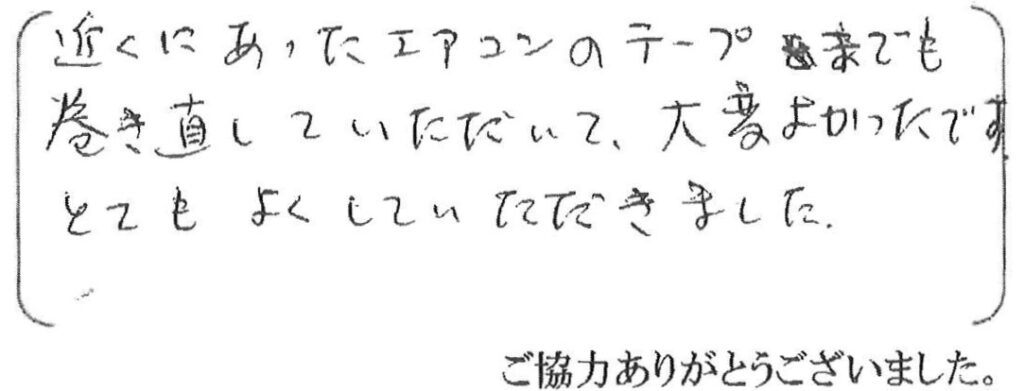 近くにあったエアコンのテープまでも
巻き直していただいて、大変よかったです
とてもよくしていただきました.
ご協力ありがとうございました。